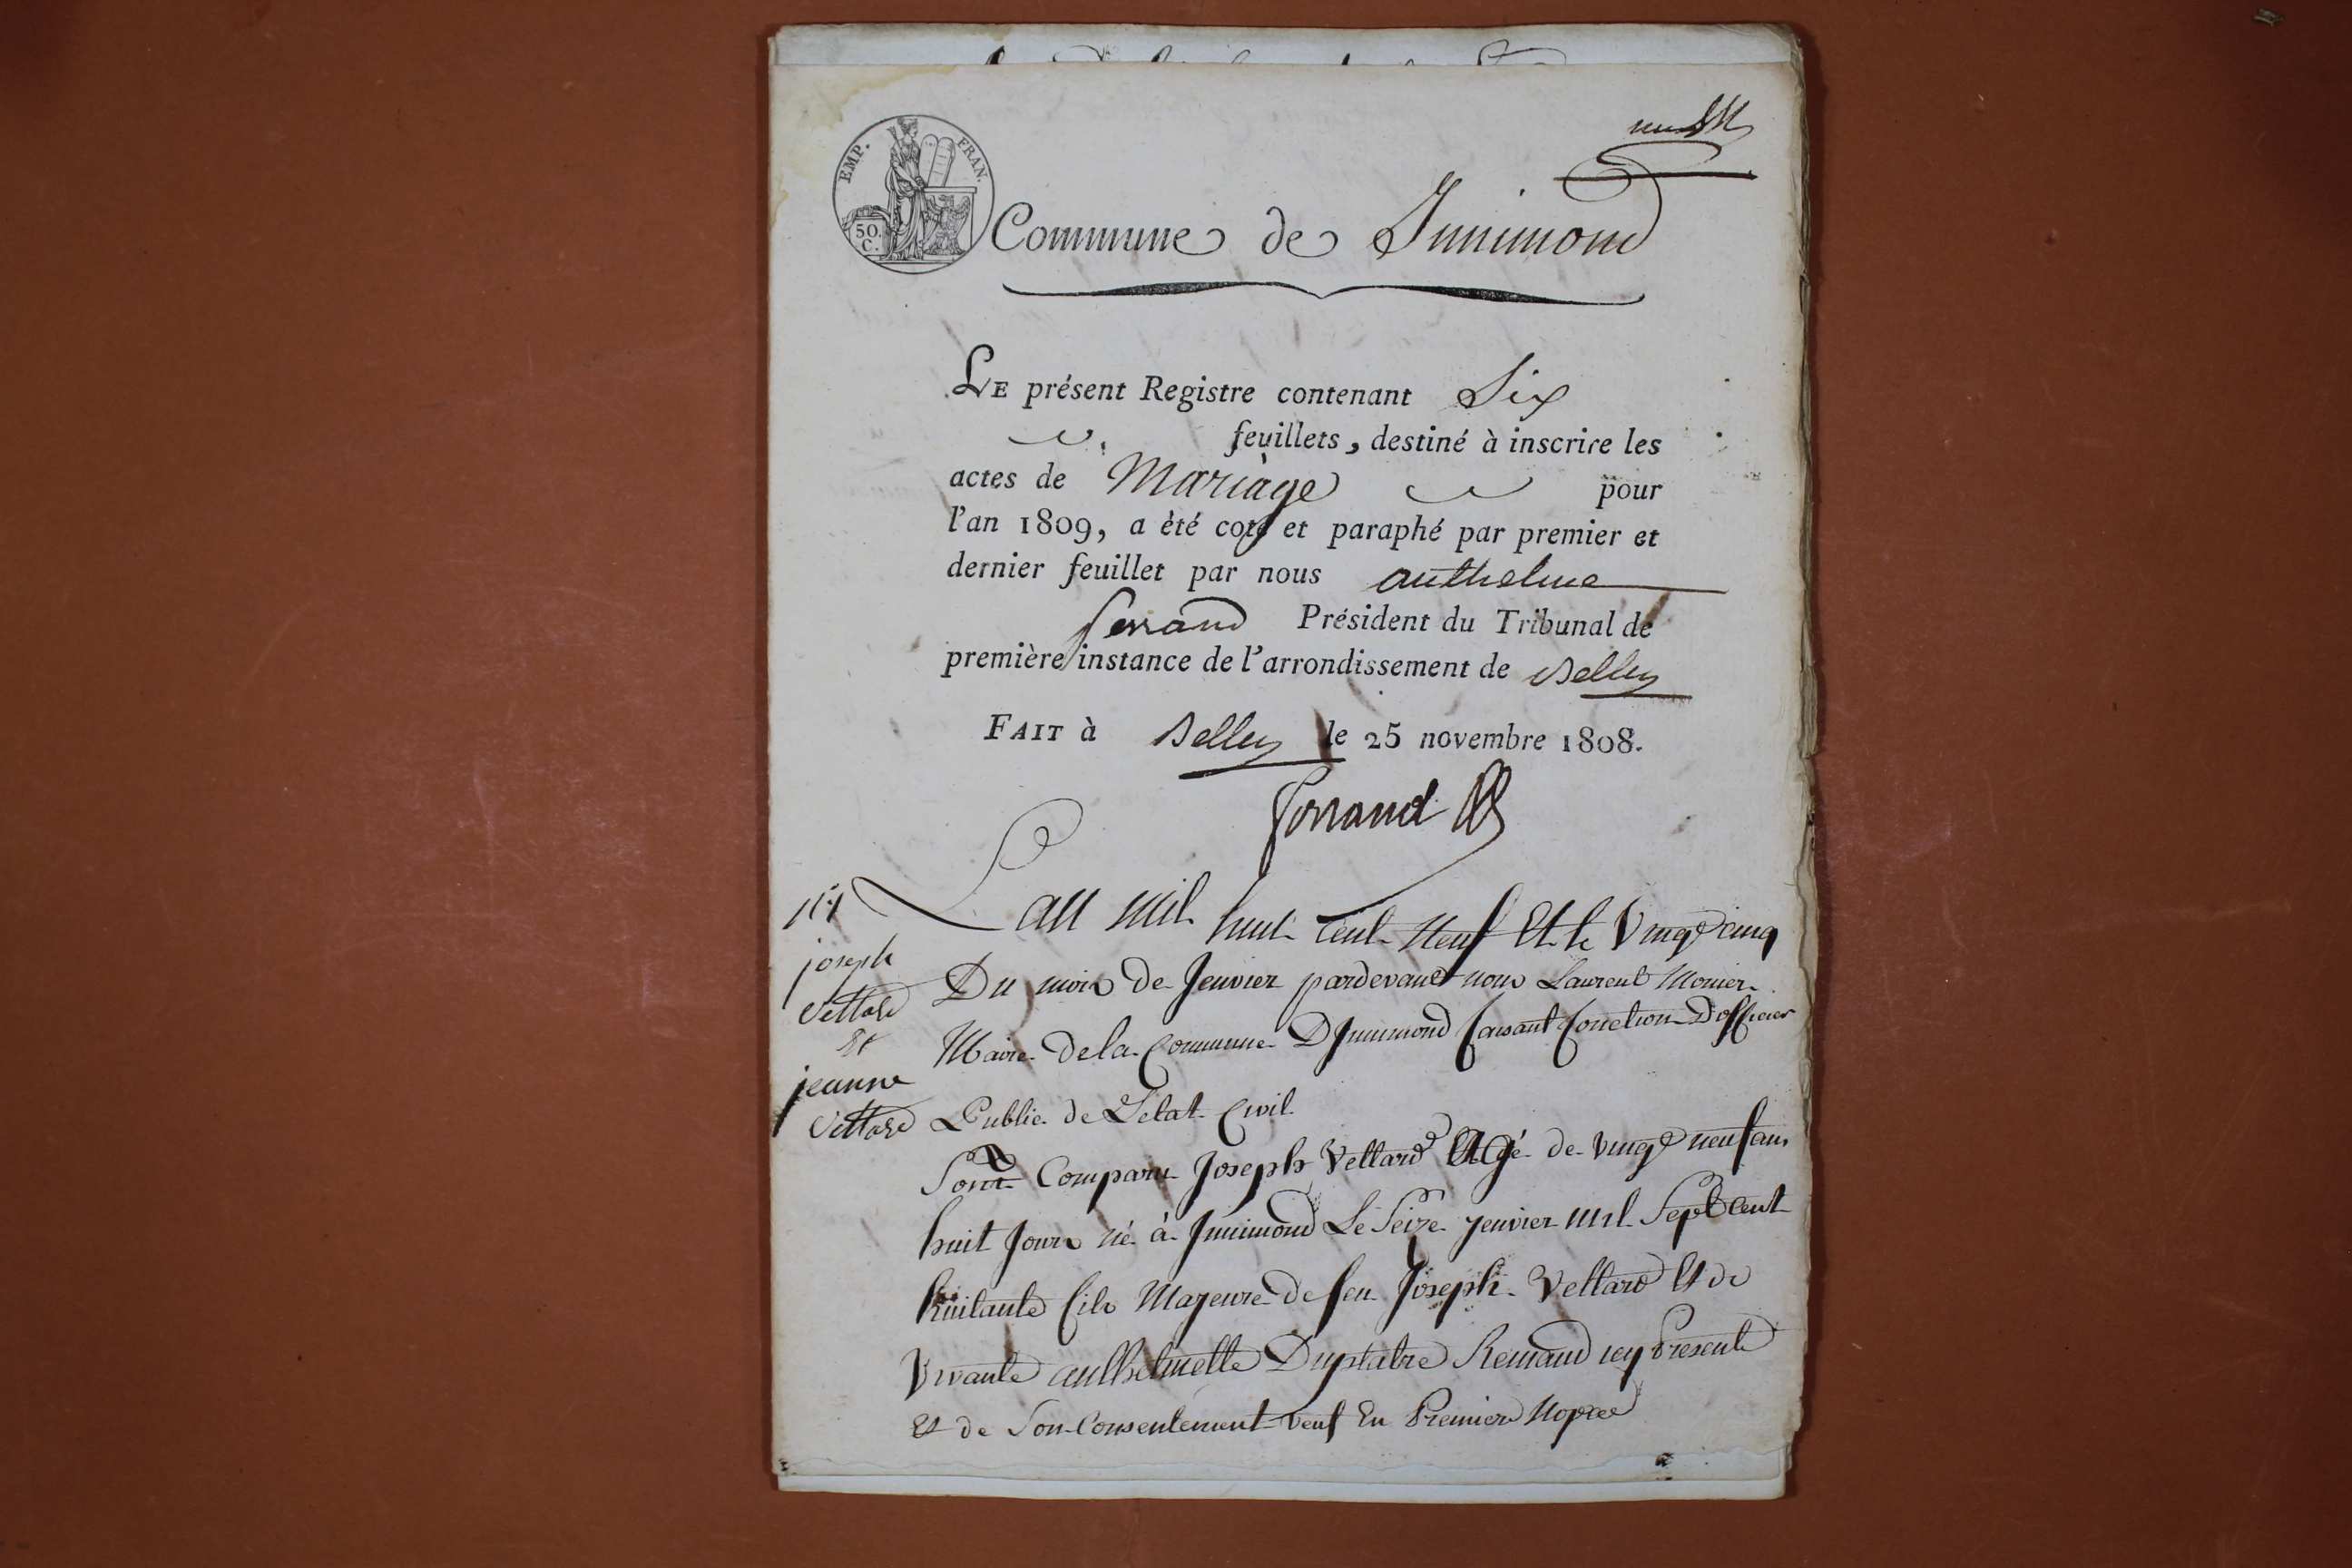 EMP. FRAN.
50. C.
Commune de Innimond
LE présent Registre contenant Six
feuillets, destiné à inscrire les
actes de Mariage pour
l'an 1809, a été coté et paraphé par premier et
dernier feuillet par nous anthelme
ferrand Président du Tribunal de
première instance de l'arrondissement de Belley
FAIT à Belley le 25 novembre 1808.
ferrand
L'an mil huit cent neuf Et le Vingt cinq
Du mois de Jenvier pardevant nous Laurent Monier
Maire de la Commune D'Innimond faisant fonction D'officier
Public de L'etat Civil
joseph
Vettard
&
jeanne
Vettard
Sont Comparu Joseph Vettard Agé de vingt neuf ans
huit Jours né à Innimond Le Seize jenvier mil Sept Cent
huitante fils Majeure de feu Joseph Vettard Et de
Vivante anthelmette Duplatre Remand icy Presente
Et de Son Consentement veuf En Premiere Nopce